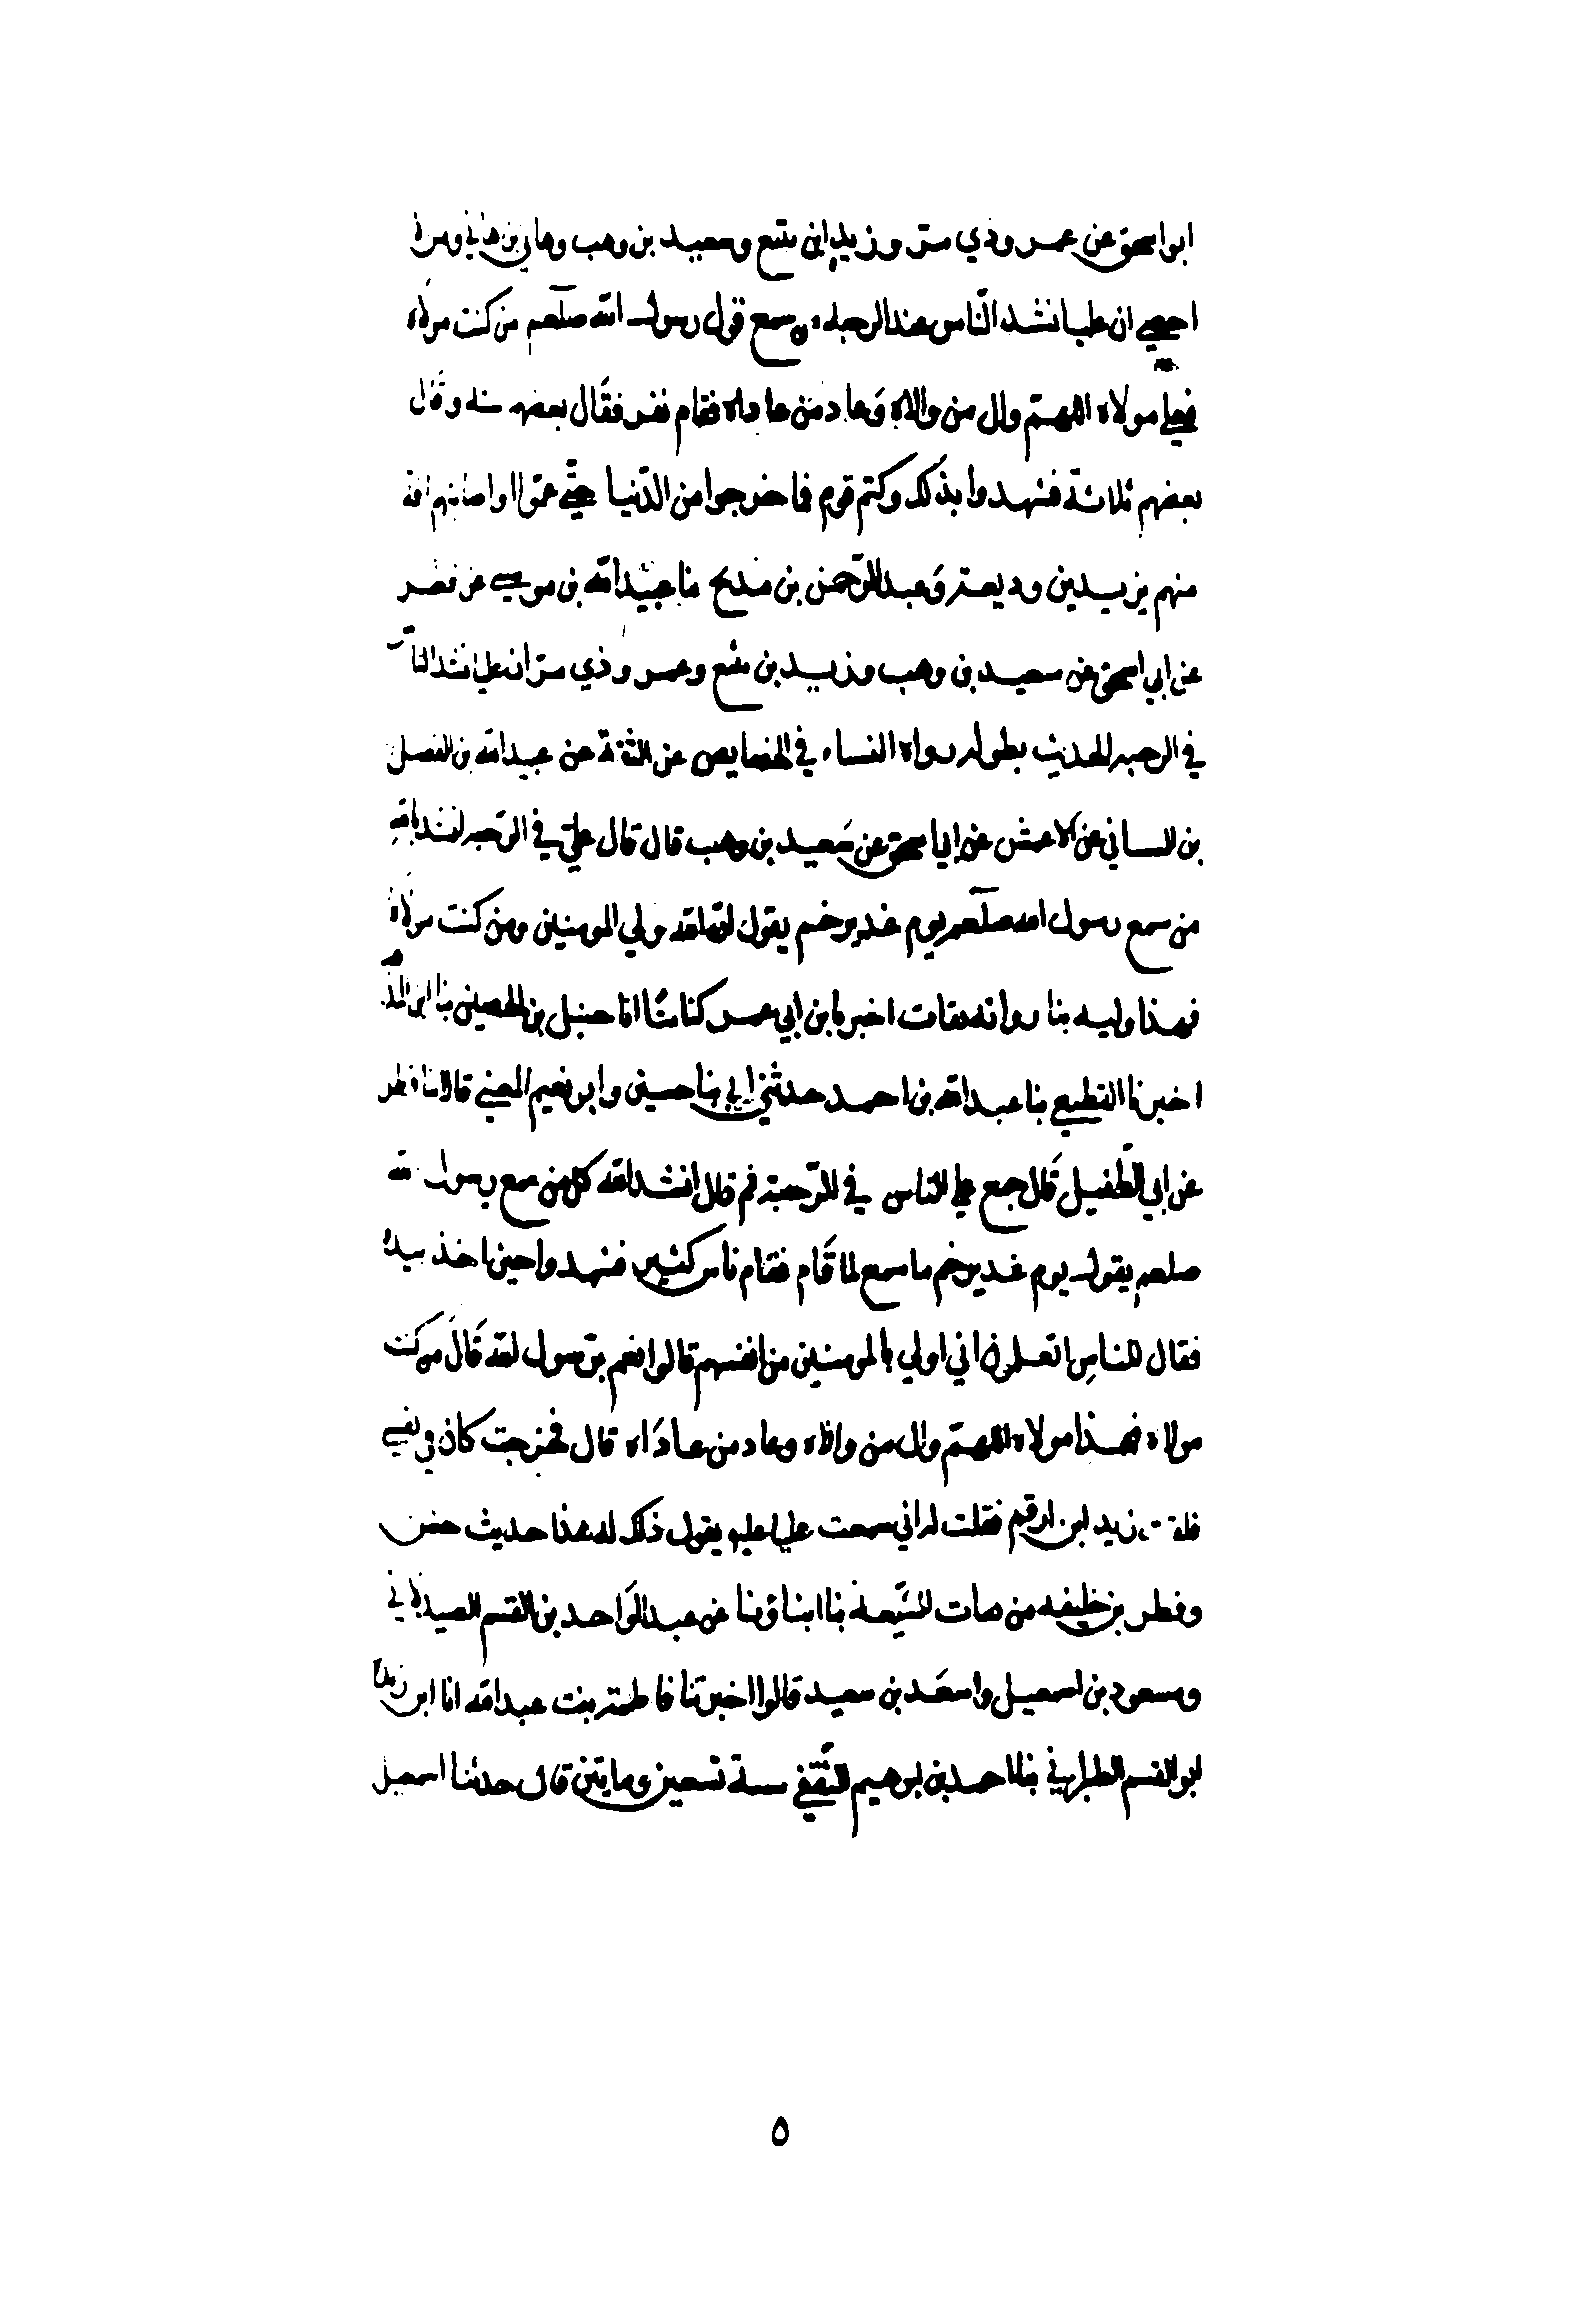 ابوا سحق عن عمر وذي مر و زيد ابن يثيع وسعيد بن وهب وهاني بن هاني
ان عليا نشد الناس عند الرحبه من سمع قول رسول الله صلعم من كنت مولاه
فعلي مولاه اللهم وال من والاه وعاد من عاداه فقام نفر فقال بعضهم سته وقال
بعضهم ثلاثة فشهدوا بذلك وكتم قوم فما خرجوا من الدنيا حتي عموا او اصابتهم افة
منهم يزيد بن وديعة وعبد الرحمن بن مدلج نا عبيد الله بن موسي عن فطر
عن ابي اسحق عن سعيد بن وهب وزيد بن يثيع وعمر وذي مر ان علي انشد الناس
في الرحبه الحديث بطوله رواه النساء في الخصايص عن الثقة عن عبيد الله بن الفضل
بن السناني عن الاعمش عن ابي اسحق عن سعيد بن وهب قال قال علي في الرحبه انشد بالله
من سمع رسول الله صلعم يوم غدير خم يقول ان الله ولي المومنين ومن كنت مولاه
فهذا وليه نا رواته ثقات اخبرنا بن ابي عمر كتابتا انا حنبل بن الحصين نا ابن المذ
اخبرنا القطيعي نا عبد الله بن احمد حدثني ابي نا حسين وابو نعيم المعني قالا نا فطر
عن ابي الطفيل قال جمع علي الناس في الرحبة ثم قال انشد الله كل من سمع رسول الله
صلعم يقول يوم غدير خم ما سمع لما قام فقام ناس كثير فشهدوا حين اخذ بيده
فقال للناس اتعلمون اني اولي بالمومنين من انفسهم قالوا نعم يرسول الله قال من كنت
مولاه فهذا مولاه اللهم وال من والاه وعاد من عاداه قال فخرجت كان في نفسي
فلقيت زيد ابن ارقم فقلت له اني سمعت عليا عليم يقول ذلك له هذا حديث حسن
وفطر بن خليفه من ثقات الشيعة نا انباؤنا عن عبد الواحد بن القسم الصيدلاني
ومسعود بن اسمعيل واسعد بن سعيد قالوا اخبرتنا فاطمة بنت عبد الله انا ابن زيدا
ابو القسم الطبراني نا احمد بن ابرهيم الثقفي سنة تسعين ومايتين قال حدثنا اسمعيل
٥